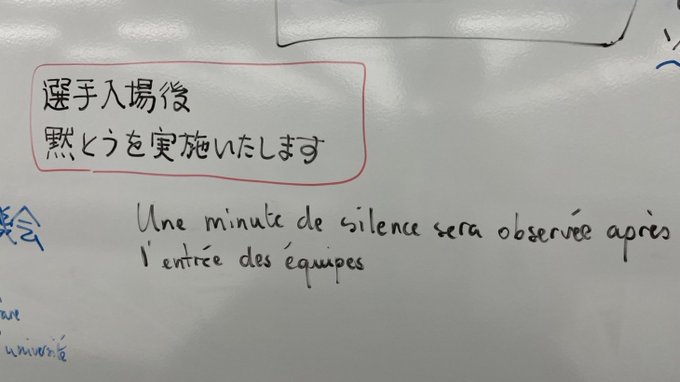 選手入場後
黙とうを実施いたします
Une minute de silence sera observée après
l'entrée des équipes
会
université